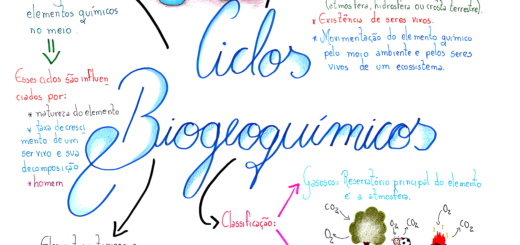 elementos químicos
no meio.
Esses ciclos são influen
ciados por:
* natureza do elemento
* taxa de cresci
mento de um
ser vivo e sua
decomposição
* homem
Ciclos
Biogeoquímicos
(atmosfera, hidrosfera ou crosta terrestre).
* Existência de seres vivos.
* Movimentação do elemento químico
pelo meio ambiente e pelos seres
vivos de um ecossistema.
Classificação:
Gasosos: Reservatório principal do elemento
é a atmosfera.
CO2
O2
O2
CO2
O2
CO2